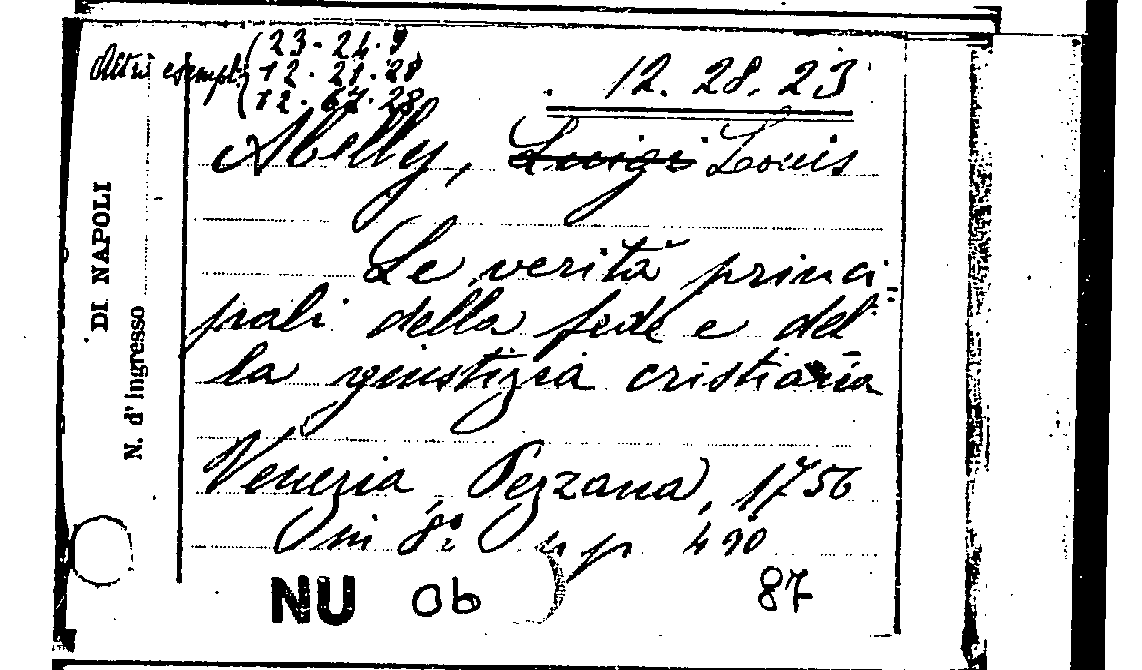 Altri esempl. 23-24-9
12-21-28
12-67-28
12. 28. 23
Abelly, Luigi Louis
Le verità princi-
pali della fede e del-
la giustizia cristiana
Venezia, Pezzana, 1756
in 8° pp 490
NU Ob 87
DI NAPOLI
N. d'Ingresso